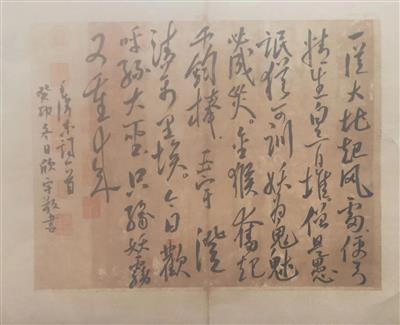 一從大地起風雷便有
精生白骨堆僧是愚
氓猶可訓妖為鬼蜮
必成災。金猴奮起
千鈞棒玉宇澄
清萬里埃。今日歡
呼孫大聖只緣妖霧
又重来
毛澤東詞一首
癸卯冬日欣宇敬書